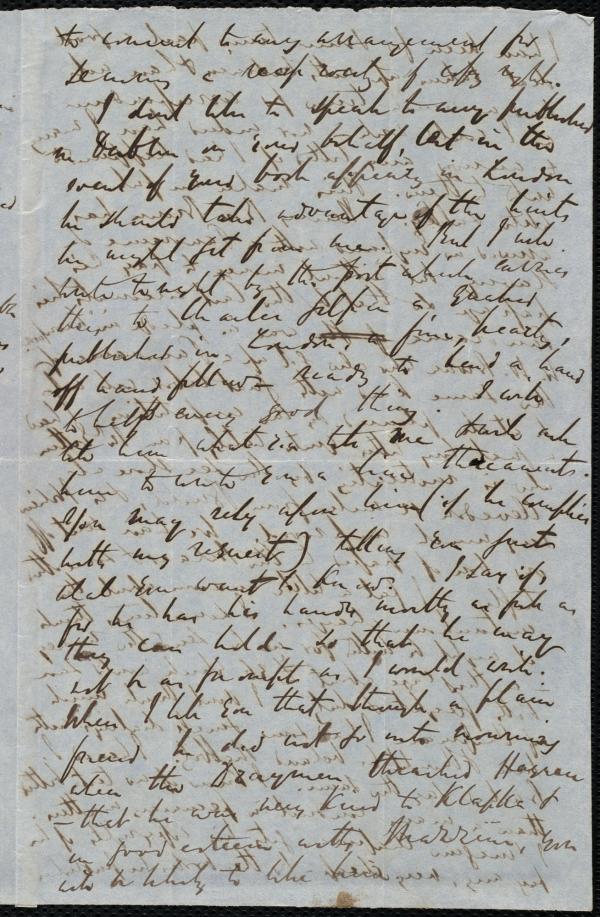 to consent to any arrangement for
securing a reciprocity of copy right.
I dont like to speak to any publisher
in Dublin on your behalf, lest in the
event of your book appearing in London
he should take advantage of the hints
he might get from me. But I will
write tonight by the post which carries
this to Charles Gilpin a Quaker
publisher in London a fine, hearty,
off hand fellow ready to lend a hand
to help every good thing. I will
tell him what you tell me and ask
him to write you on his own account.
You may rely upon him (if he complies
with my request) telling you just
what you want to know. I say if,
for he has his hands mostly as full as
they can hold – so that he may
not be as prompt as I would wish.
When I tell you that though a plain
friend he did not go into mourning
when the Draymen thrashed Haynau
– that he was very kind to Klapka &
in good esteem with Mazzini, you
will be likely to like him